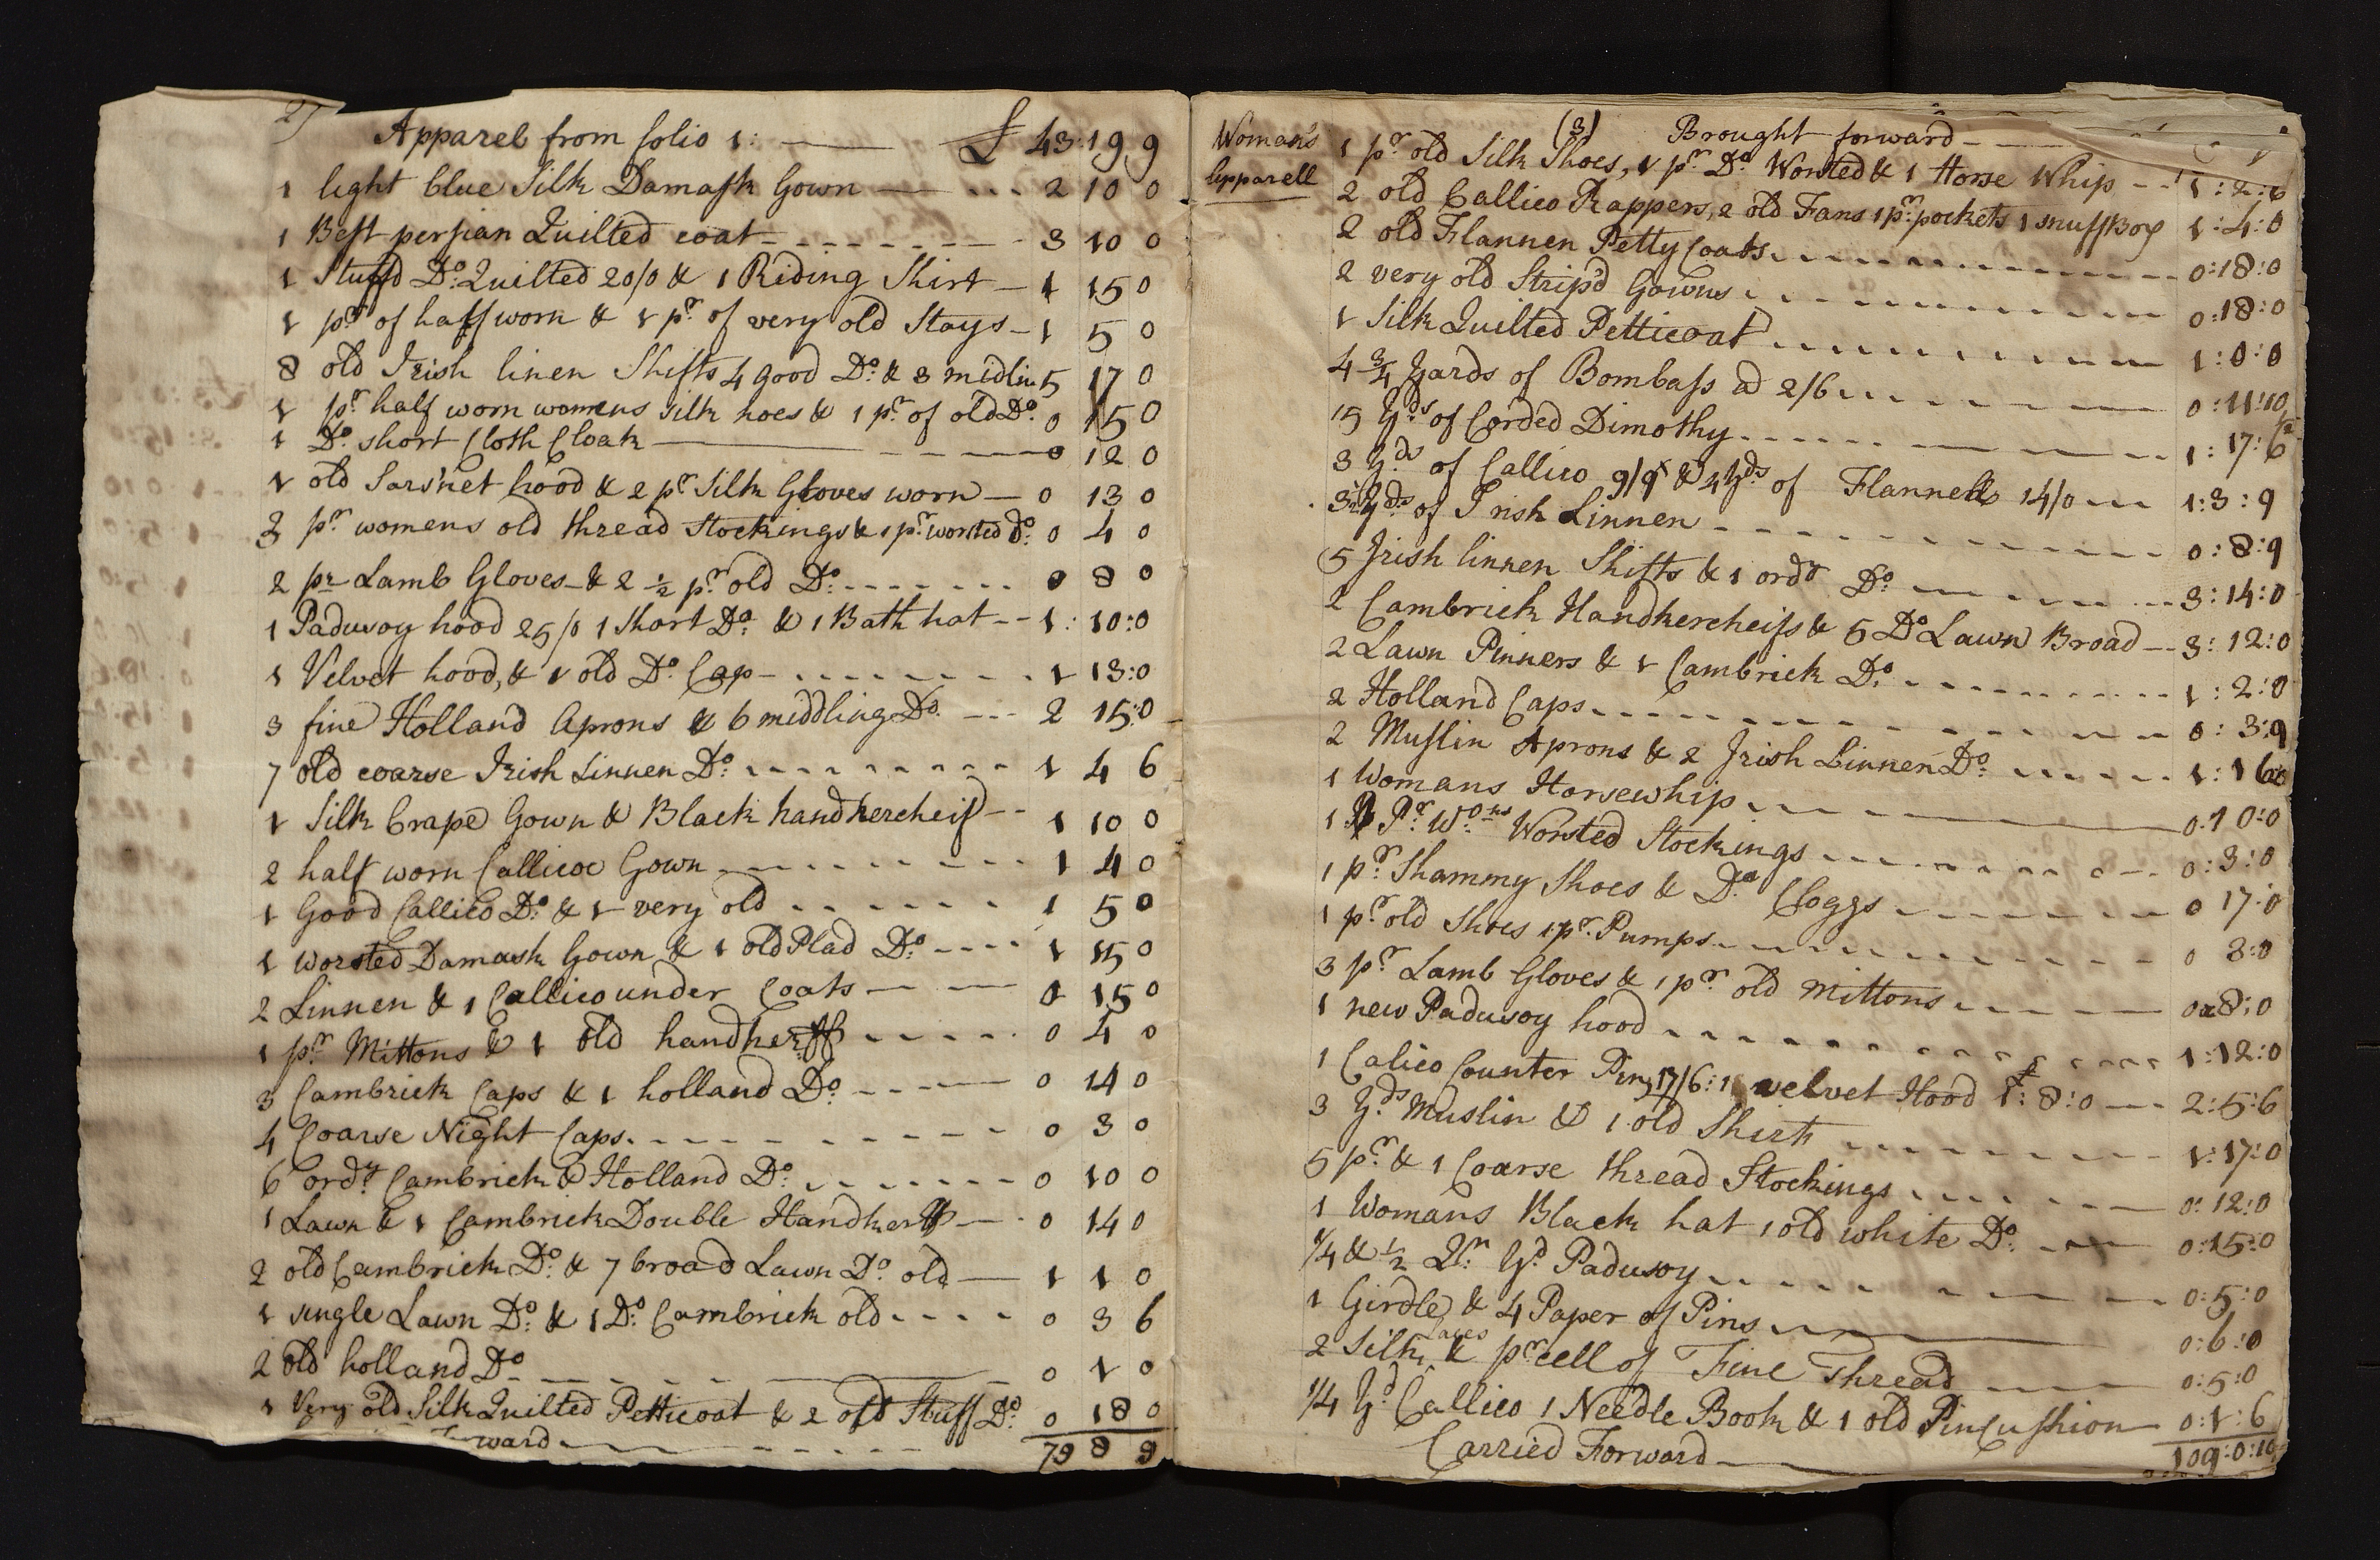 2)
Apparel from folio 1: £ 43:19 9
1 light blue Silk Damask Gown 2 10 0
1 Best persian Quilted coat 3 10 0
1 Stuff'd Do: Quilted 20/0 & 1 Riding Shirt 1 15 0
1 pr of half worn & 1 pr. of very old Stays 1 5 0
8 old Irish linen Shifts 4 good Do: & 3 midlin 5 17 0
1 pr. half worn womens silk hoes & 1 pr. of old Do. 0 15 0
1 Do. short Cloth Cloak 0 12 0
1 old Sarsnet hood & 2 pr Silk Gloves worn 0 13 0
3 pr. womens old thread Stockings & 1 pr. worsted Do: 0 4 0
2 pr Lamb Gloves & 2 ½ pr. old Do: 0 8 0
1 Padusoy hood 25/0 1 Short Do: & 1 Bath hat 1: 10:0
1 Velvet hood, & 1 old Do. Cap 1 13:0
3 fine Holland Aprons & 6 middling Do. 2 15:0
7 old coarse Irish Linnen Do: 1 4 6
1 Silk Crape Gown & Black handkercheif 1 10 0
2 half worn Callicoe Gown 1 4 0
1 Good Callico Do: & 1 very old 1 5 0
1 worsted Damask Gown & 1 old Plad Do: 1 15 0
2 Linnen & 1 Callico under Coats 0 15 0
1 pr. Mittons & 1 old handkerff 0 4 0
3 Cambrick Caps & 1 holland Do: 0 14 0
4 Coarse Night Caps. 0 3 0
6 ordy Cambrick & Holland Do: 0 10 0
1 Lawn & 1 Cambrick Double Handkerff 0 14 0
2 old Cambrick Do: & 7 broad Lawn Do: old 1 1 0
1 single Lawn Do: & 1 Do: Cambrick old 0 3 6
2 old holland Do 0 1 0
1 Very old Silk Quilted Petticoat & 2 old Stuff Do: 0 18 0
ward 79 8 9
Woman's
Apparell
(3) Brought forward
1 pr. old Silk Shoes, 1 pr. Do. Worsted & 1 Horse Whip 1:2:6
2 old Callico Rappers, 2 old Fans 1 pr. pockets 1 snuff Box 1:4:0
2 old Flannen Petty Coats 0:18:0
2 very old Strip'd Gowns 0:18:0
1 Silk Quilted Petticoat 1:0:0
4 ¾ Yards of Bombass ad 2/6 0:11:10½
15 Yds of Corded Dimothy 1:17:6
3 Yds of Callico 9/9 & 4 Yds of Flannell 14/0 1:3:9
3½ Yds of Irish Linnen 0:8:9
5 Irish linnen Shifts & 1 ordy Do. 3:14:0
2 Cambrick Handkercheifs & 5 Do. Lawn Broad 3:12:0
2 Lawn Pinners & 1 Cambrick Do. 1:2:0
2 Holland Caps 0:3:9
2 Muslin Aprons & 2 Irish Linnen Do: 1:1 6
1 Womans Horsewhip 0:10:0
1 Pr. Wo:ns Worsted Stockings 0:3:0
1 pr. Shammy Shoes & Do. Cloggs 0 17:0
1 pr. old Shoes 1 pr. Pumps 0 3:0
3 pr. Lamb Gloves & 1 pr. old Mittons 0:8:0
1 new Padusoy hood 1:12:0
1 Calico Counter Pin, 17/6: 1 velvet Hood £1:8:0 2:5:6
3 Yds Muslin & 1 old Shirt 1:17:0
5 pr. & 1 Coarse thread Stockings 0:12:0
1 Womans Black hat 1 old white Do: 0:15:0
¼ & ½ Qr. Yd Padusoy 0:5:0
1 Girdle & 4 Paper of Pins 0:6:0
2 Silk Laces & prcell of Fine Thread 0:5:0
¼ Yd Callico 1 Needle Book & 1 old Pincushion 0:1:6
Carried Forward 109:0:10